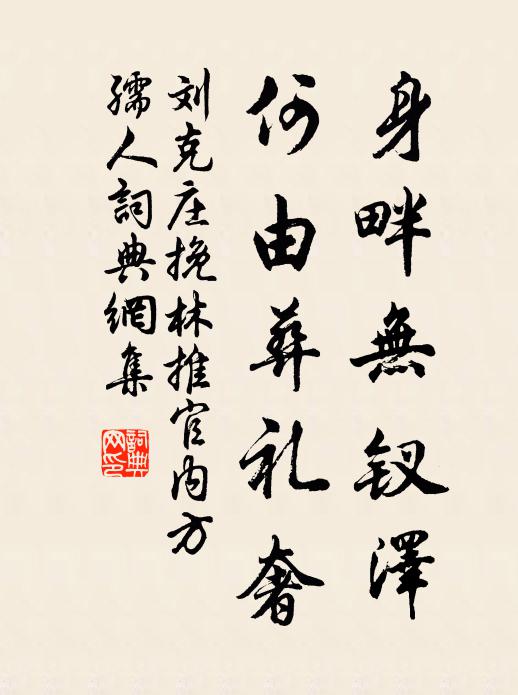 身畔無钗澤
何由葬礼奢
刘克庄挽林推官内方
孺人詞典網集
詞典网印